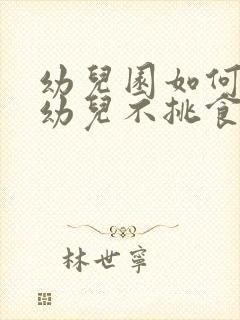 幼兒園如何
幼兒不挑食
林世寧